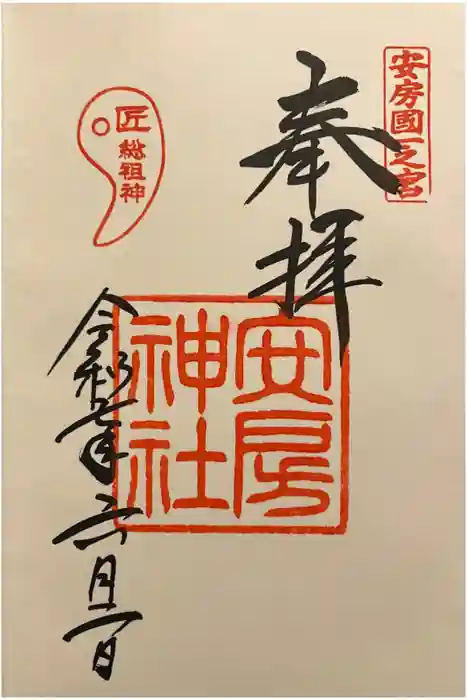 安房國一之宮
奉拝
安房
神社
匠
総祖神
令和七年六月一日